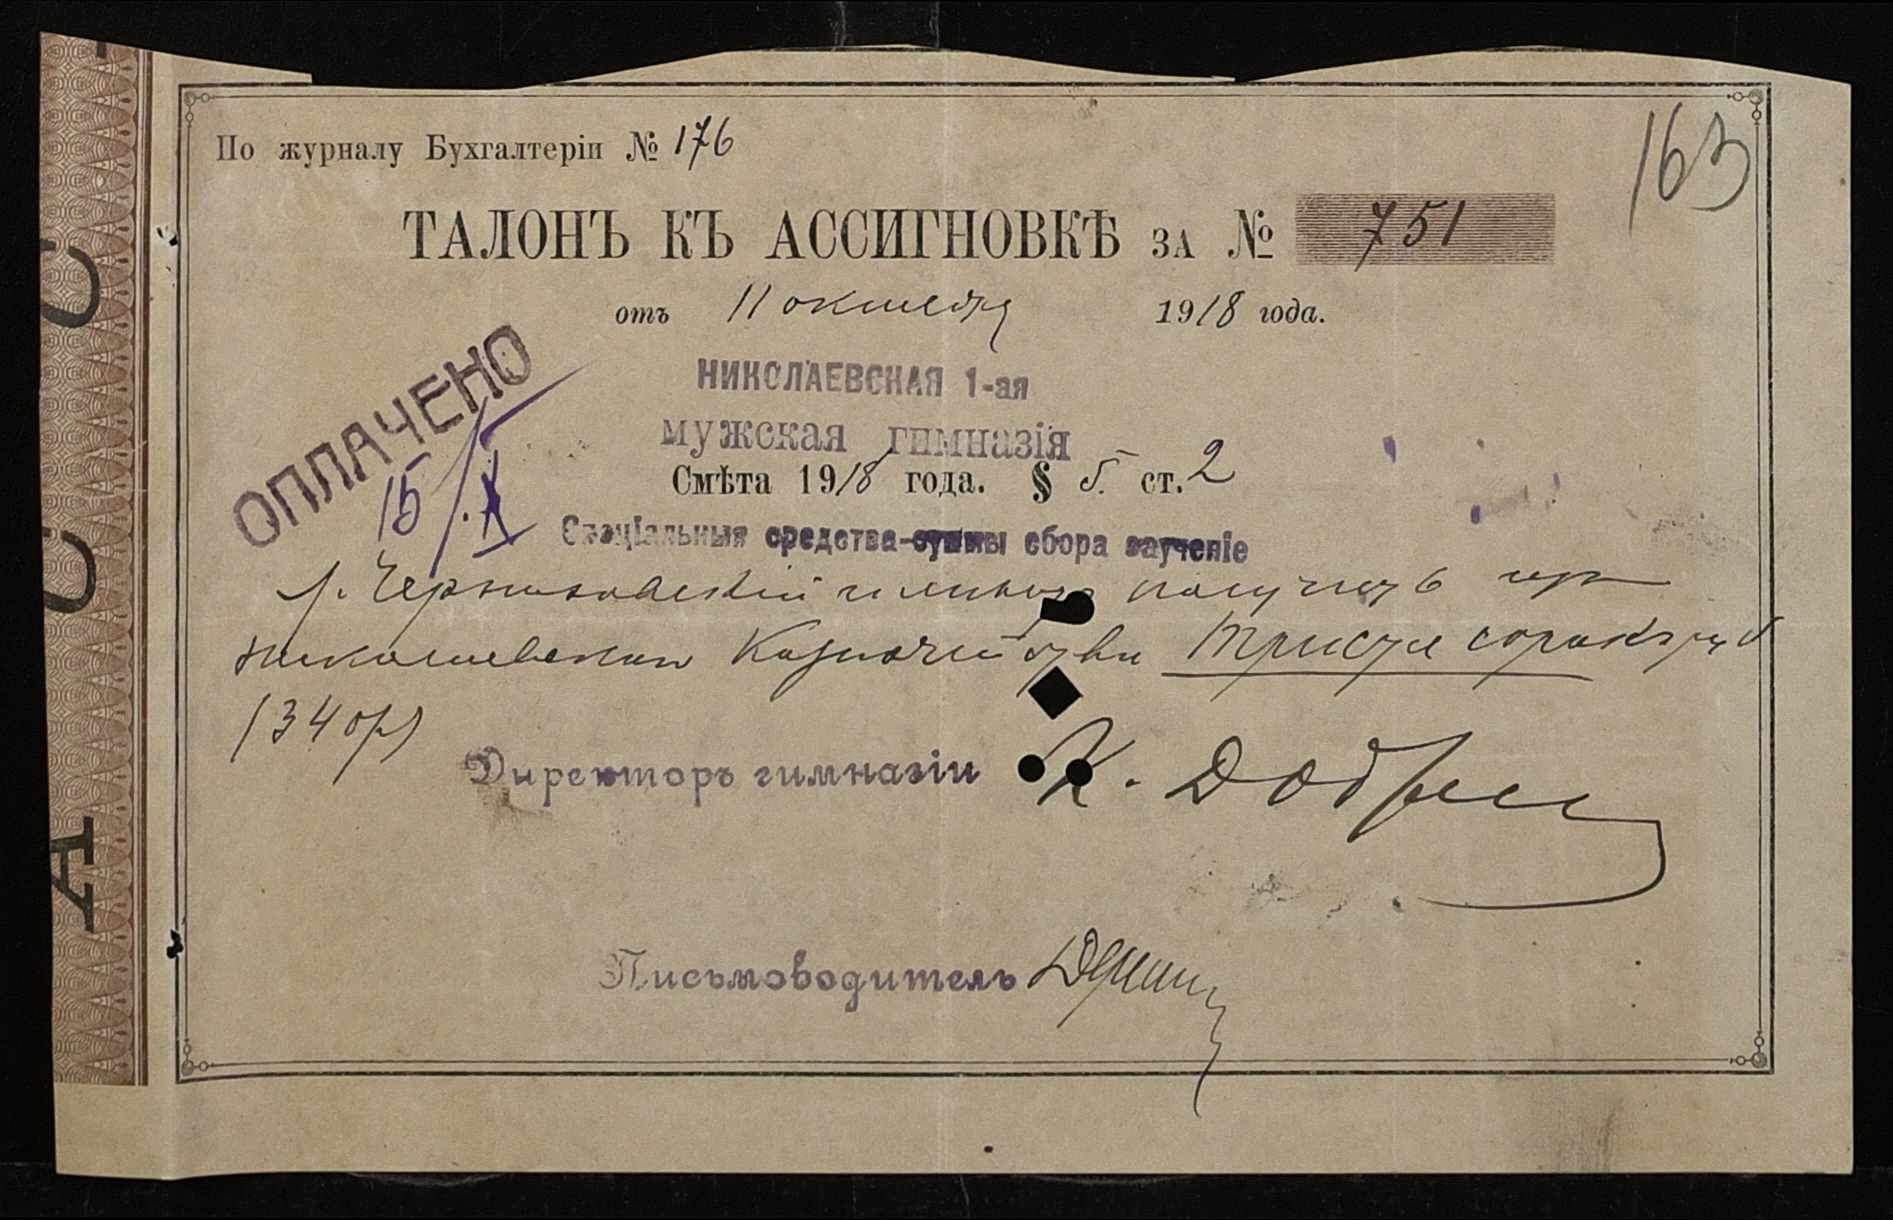 163
По журналу Бухгалтеріи № 176
ТАЛОНЪ КЪ АССИГНОВКѢ ЗА № 751
отъ 11 октября 1918 года.
ОПЛАЧЕНО
15/X
НИКОЛАЕВСКАЯ 1-ая
мужская гимназія
Смѣта 1918 года. § 5. ст. 2
Спеціальныя средства-суммы сбора за ученіе
г. получить
Николаевском Казначействе Триста сорокъ руб
(340 р)
Директоръ гимназіи К.
Письмоводитель
А С С